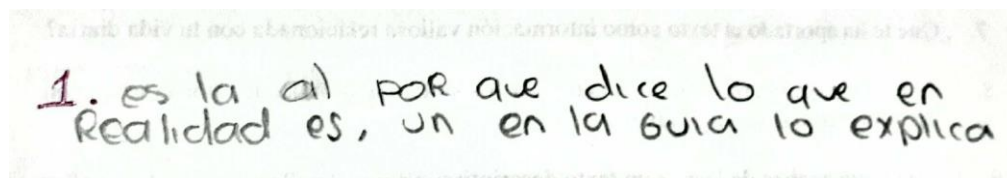 1. es la a) POR que dice lo que en
Realidad es, un en la Guia lo explica